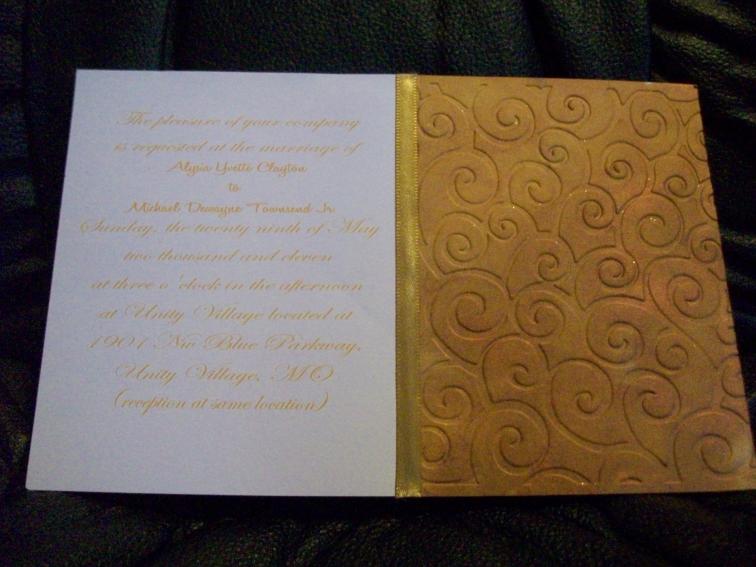 The pleasure of your company
is requested at the marriage of
Alysia Yvette Clayton
to
Michael Dewayne Townsend Jr
Sunday, the twenty ninth of May
two thousand and eleven
at three o'clock in the afternoon
at Unity Village located at
1901 Nw Blue Parkway,
Unity Village, MO
(reception at same location)